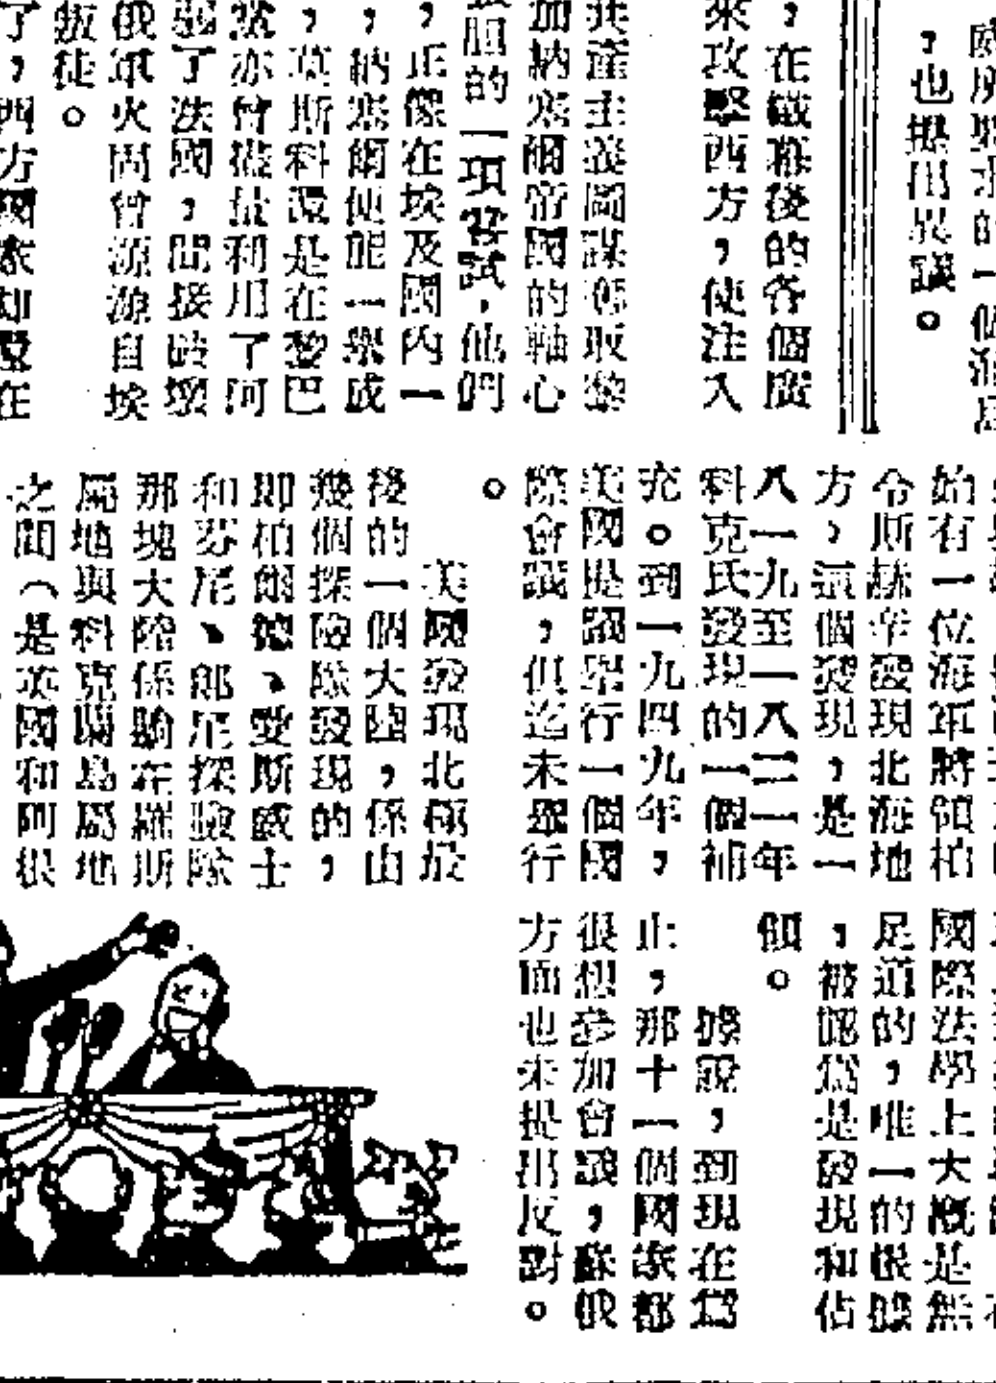 ，也提出異議。
，在鐵幕後的各個廣
來攻擊西方，使注入
共產主義圖謀奪取整
加納塞爾帝國的軸心
的一項嘗試，他們
，正像在埃及國內一
，納塞爾便能一舉成
，莫斯科還是在黎巴
黨亦曾儘量利用了阿
弱了法國，間接破壞
俄軍火尚曾源源自埃
叛徒。
了，西方國家却還在
始有一位海軍將領柏
令斯赫辛發現北海地
方，這個發現，是一
八一九至一八二一年
科克氏發現的一個補
充。到一九四九年，
美國提議舉行一個國
際會議，俱迄未舉行
。
美國發現北極最
後的一個大陸，係由
幾個探險隊發現的，
即柏爾德、愛斯威士
和芬尼、郎尼探險隊
那塊大陸係騎在羅斯
屬地與科克蘭島屬地
之間（是英國和阿根
國際法學上大概是無
足道的，唯一的根據
，被認爲是發現和佔
領。
據說，到現在爲
止，那十一個國家都
很想參加會議，蘇俄
方面也未提出反對。